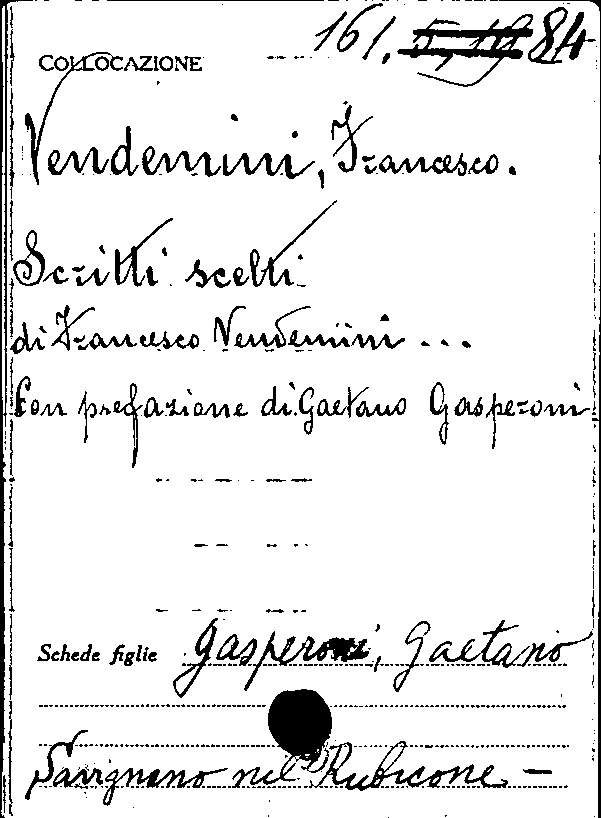 COLLOCAZIONE 161. 84
Vendemini, Francesco.
Scritti scelti
di Francesco Vendemini ...
Con prefazione di Gaetano Gasperoni
Schede figlie Gasperoni, Gaetano
Savignano nel Rubicone -